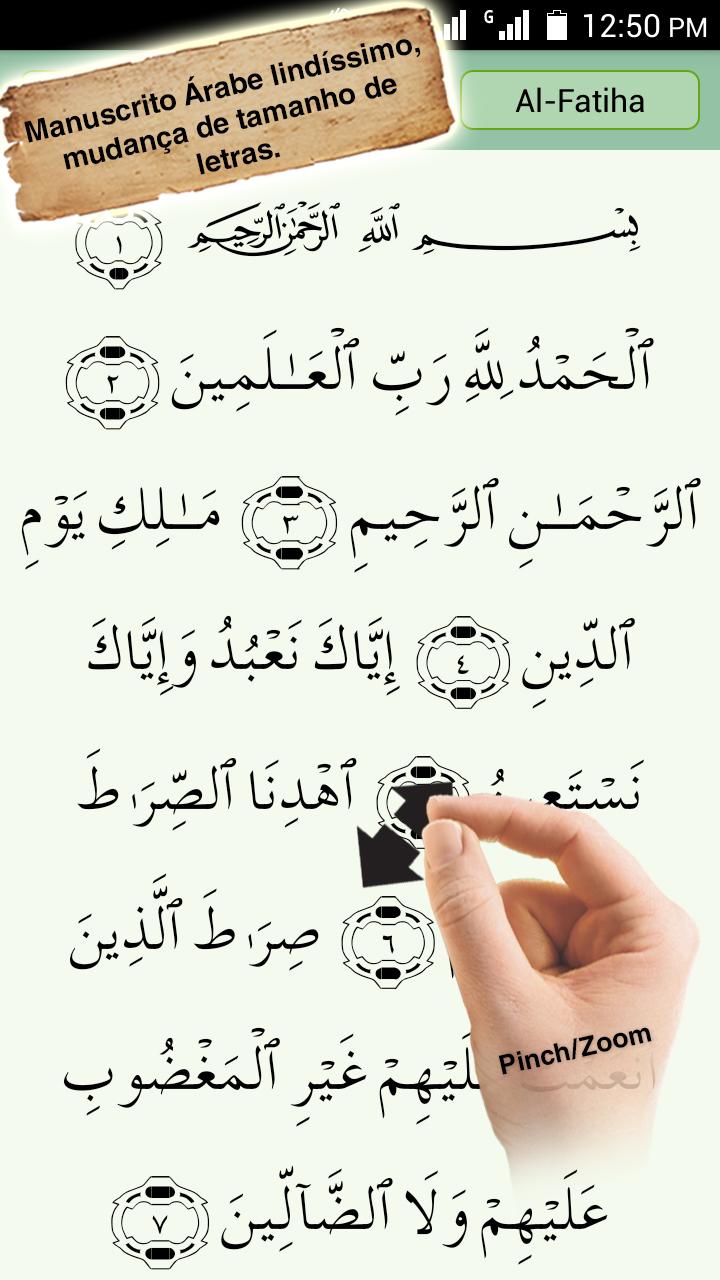 12:50 PM
Manuscrito Árabe lindíssimo,
mudança de tamanho de
letras.
Al-Fatiha
بِسْمِ ٱللَّهِ ٱلرَّحْمَٰنِ ٱلرَّحِيمِ ١
ٱلْحَمْدُ لِلَّهِ رَبِّ ٱلْعَـٰلَمِينَ ٢
ٱلرَّحْمَـٰنِ ٱلرَّحِيمِ ٣ مَـٰلِكِ يَوْمِ
ٱلدِّينِ ٤ إِيَّاكَ نَعْبُدُ وَإِيَّاكَ
ٱهْدِنَا ٱلصِّرَٰطَ
٦ صِرَٰطَ ٱلَّذِينَ
غَيْرِ ٱلْمَغْضُوبِ
عَلَيْهِمْ وَلَا ٱلضَّآلِّينَ ٧
Pinch/Zoom